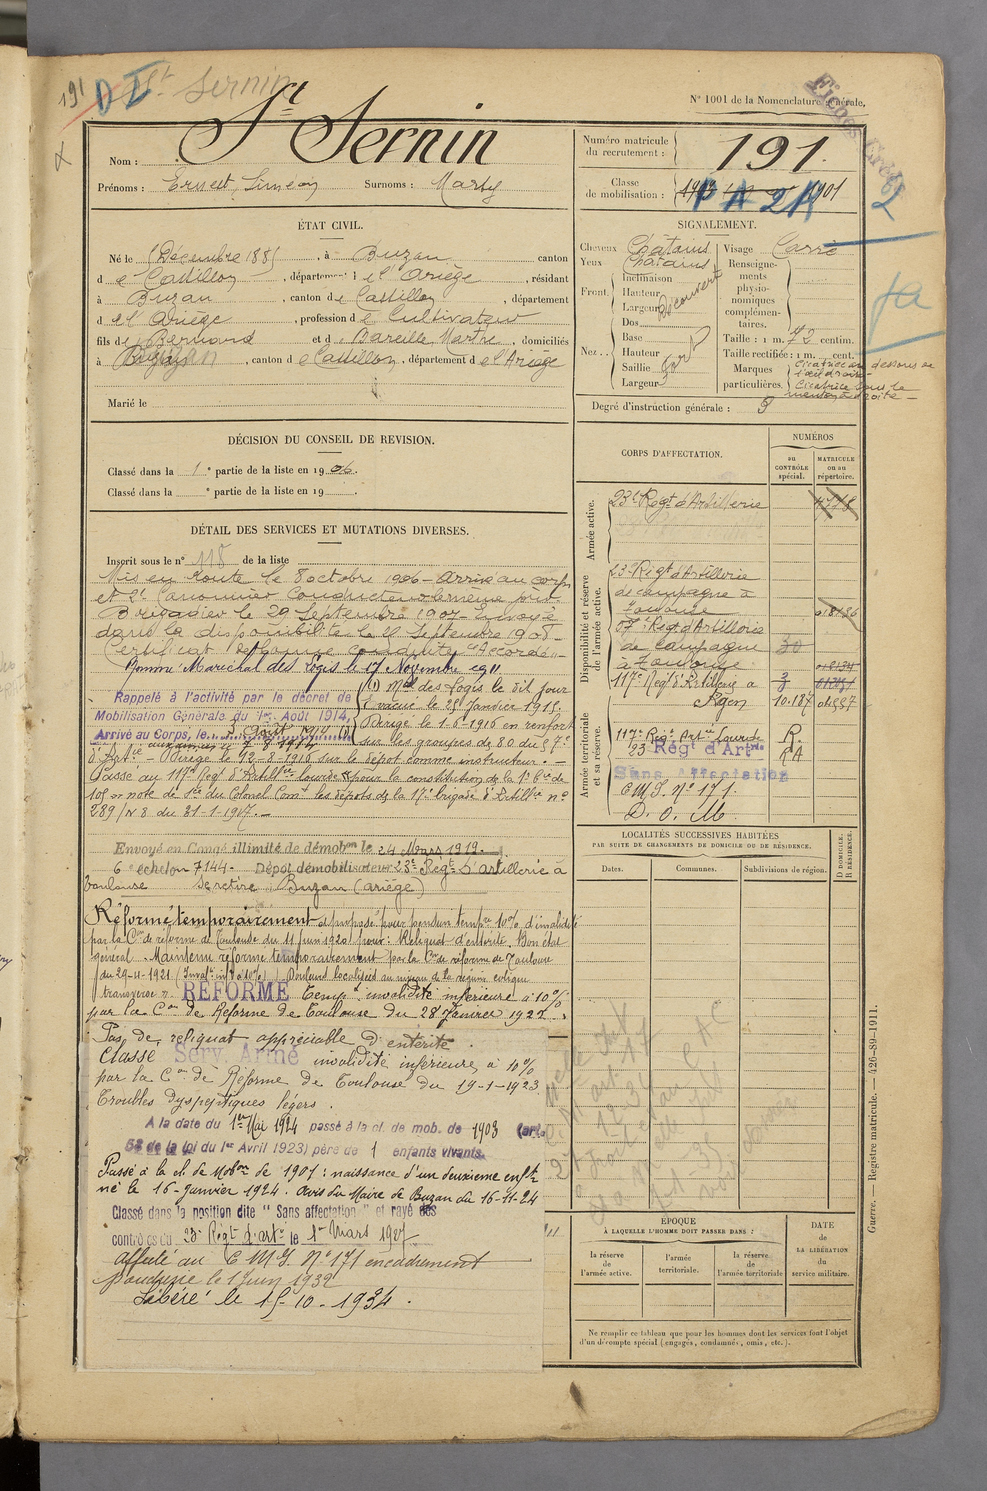 191
D I
St Sernin
N° 1001 de la Nomenclature générale.
Nom : St Sernin
Prénoms : Ernest, Siméon Surnoms : Marty
Numéro matricule du recrutement : 191.
Classe de mobilisation : 1901
2
ÉTAT CIVIL.
Né le 1 Décembre 1885, à Buzan, canton
d e Castillon, département d e l'Ariège, résidant
à Buzan, canton de Castillon, département
d e l'Ariège, profession d e Cultivateur
fils de Bernard et de Bareille Marthe, domiciliés
à Buzan, canton d e Castillon, département d e l'Ariège
Marié le
SIGNALEMENT.
Cheveux Châtains Visage Carré
Yeux Châtains
Front. Inclinaison
Hauteur
Largeur
Découvert
Nez. Dos
Base
Hauteur
Saillie
Largeur
fort
Renseignements physionomiques complémentaires.
Taille : 1 m. 72 centim.
Taille rectifiée : 1 m. cent.
Marques particulières. Cicatrice au dessous de l'œil droit
Cicatrice sous le menton à droite
Degré d'instruction générale : 3
DÉCISION DU CONSEIL DE REVISION.
Classé dans la 1e partie de la liste en 1906.
Classé dans la e partie de la liste en 19 .
DÉTAIL DES SERVICES ET MUTATIONS DIVERSES.
Inscrit sous le n° 118 de la liste
Mis en route le 8 octobre 1906 - arrivé au corps
et 2e Canonnier Conducteur le même jour
Brigadier le 29 Septembre 1907 - Envoyé
dans la disponibilité le Septembre 1908 -
Certificat de bonne conduite "Accordé" -
Nommé Maréchal des Logis le 17 Novembre 1911.
Rappelé à l'activité par le décret de
Mobilisation Générale du 1er Août 1914,
Arrivé au Corps, le
(1) Mal des Logis le dit jour
Évacué le 25 Janvier 1915.
Dirigé le 1-6-1916 en renfort
sur les groupes de 80 du 57e
d'Artie - Dirigé le 12-8-1916 sur le dépôt comme instructeur. -
Passé au 117e Régt d'Artillie lourde pour la constitution de la 1e Bie de
105 note de Sce du Colonel Comt les dépôts de la 17e brigade d'Artillie n°
289/N 8 du 31-1-1917. -
Envoyé en Congé illimité de démobon le 24 Mars 1919.
6e échelon 7144. Dépôt démobilisateur 23e Régt d'artillerie à
Toulouse se retire à Buzan (Ariège)
Réformé temporairement et proposé pour pension tempre 10% d'invalidité
par la Con de réforme de Toulouse du 11 Juin 1920 pour : Reliquat d'entérite. Bon état
général. Maintenu réformé temporairement par la Con de réforme de Toulouse
du 29-4-1921 (Invalté infre à 10%) Douleur localisée au niveau de la région colique
transverse ". RÉFORMÉ Tempt invalidité inférieure à 10%
par la Con de Réforme de Toulouse du 28 Janvier 1922.
Pas de reliquat appréciable d'entérite.
Classé Serv. Armé invalidité inférieure à 10%
par la Con de Réforme de Toulouse du 19-1-1923
Troubles dyspeptiques légers.
A la date du 1er Mai 1924 passé à la cl. de mob. de 1903 (art.
58 de la loi du 1er Avril 1923) père de 1 enfants vivants.
Passé à la cl. de Mobon de 1901 : naissance d'un deuxième enft
né le 16 Janvier 1924. Avis du Maire de Buzan du 16-11-24
Classé dans la position dite "Sans affectation" et rayé des
contrôles du 23e Régt d'artie le 1er Mars 1927
Affecté au C M I N° 171 encadrement
poudrerie le 1 Juin 1932
Libéré le 15-10-1934.
CORPS D'AFFECTATION.
NUMÉROS
au CONTRÔLE spécial.
MATRICULE ou au répertoire.
Armée active.
23e Régt d'Artillerie
Disponibilité et réserve de l'armée active.
23e Régt d'Artillerie
de campagne à
Toulouse
57e Régt d'Artillerie
de Campagne 30
à Toulouse
117e Régt d'Artillerie à 3
Agen 10.187
Armée territoriale et sa réserve.
117e Régt Artie Lourde R.
23 Régt d'Artie RA
Sans Affectation
C M I. N° 171.
D. O. M.
LOCALITÉS SUCCESSIVES HABITÉES
PAR SUITE DE CHANGEMENTS DE DOMICILE OU DE RÉSIDENCE.
Dates. Communes. Subdivisions de région.
D DOMICILE.
R RÉSIDENCE.
ÉPOQUE
À LAQUELLE L'HOMME DOIT PASSER DANS :
la réserve de l'armée active.
l'armée territoriale.
la réserve de l'armée territoriale
DATE de LA LIBÉRATION du service militaire.
Ne remplir ce tableau que pour les hommes dont les services font l'objet
d'un décompte spécial (engagés, condamnés, omis, etc.).
Guerre. — Registre matricule. — 426-89-1911.